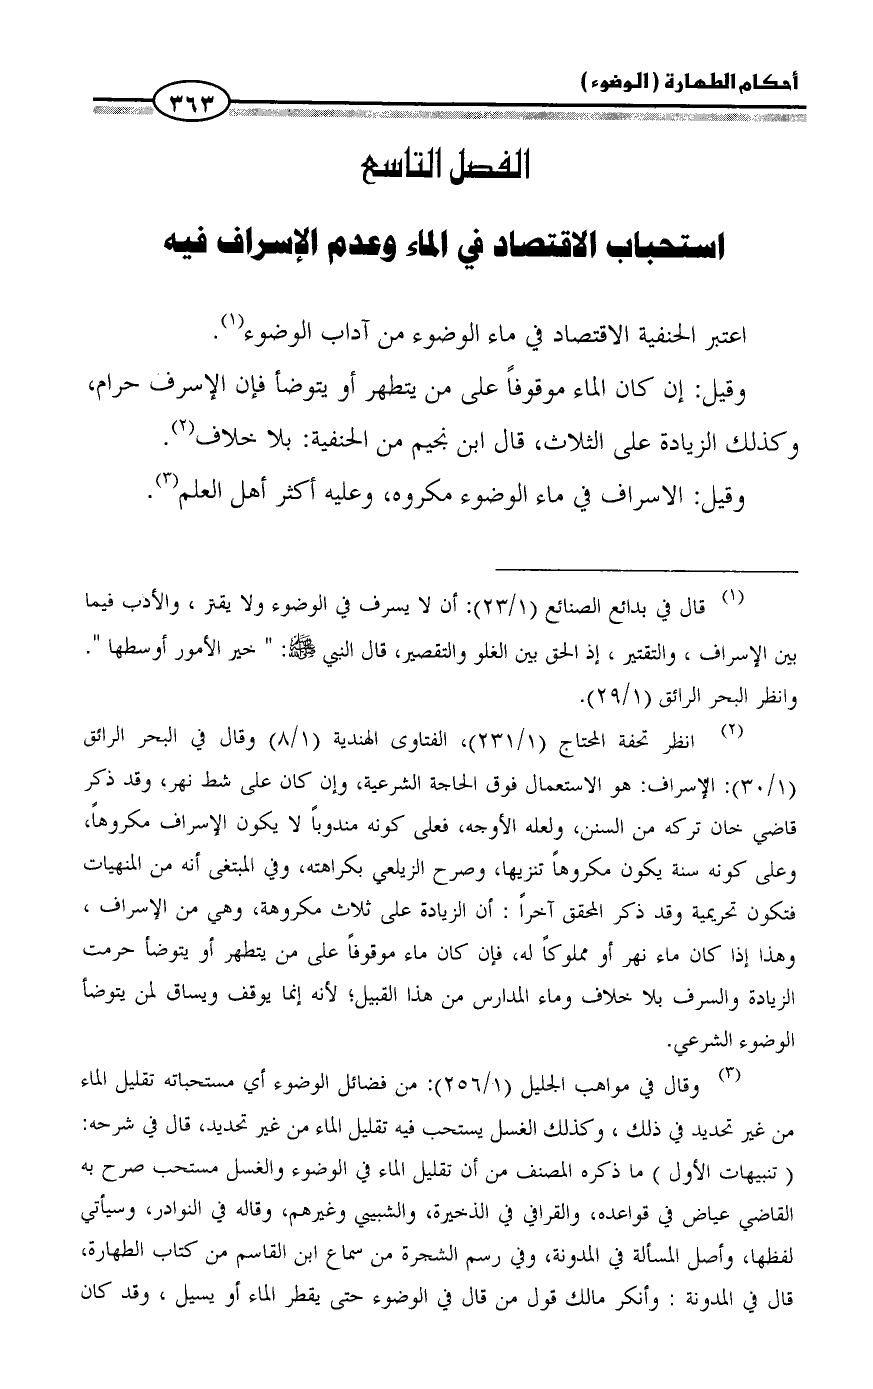 أحكام الطهارة (الوضوء)
٣٦٣
الفصل التاسع
استحباب الاقتصاد في الماء وعدم الإسراف فيه
اعتبر الحنفية الاقتصاد في ماء الوضوء من آداب الوضوء(١).
وقيل: إن كان الماء موقوفاً على من يتطهر أو يتوضأ فإن الإسرف حرام،
وكذلك الزيادة على الثلاث، قال ابن نجيم من الحنفية: بلا خلاف(٢).
وقيل: الاسراف في ماء الوضوء مكروه، وعليه أكثر أهل العلم(٣).
(١) قال في بدائع الصنائع (٢٣/١): أن لا يسرف في الوضوء ولا يقتر ، والأدب فيما
بين الإسراف ، والتقتير ، إذ الحق بين الغلو والتقصير، قال النبي ﷺ: " خير الأمور أوسطها ".
وانظر البحر الرائق (٢٩/١).
(٢) انظر تحفة المحتاج (٢٣١/١)، الفتاوى الهندية (٨/١) وقال في البحر الرائق
(٣٠/١): الإسراف: هو الاستعمال فوق الحاجة الشرعية، وإن كان على شط نهر، وقد ذكر
قاضي خان تركه من السنن، ولعله الأوجه، فعلى كونه مندوباً لا يكون الإسراف مكروهاً،
وعلى كونه سنة يكون مكروهاً تنزيها، وصرح الزيلعي بكراهته، وفي المبتغى أنه من المنهيات
فتكون تحريمية وقد ذكر المحقق آخراً : أن الزيادة على ثلاث مكروهة، وهي من الإسراف ،
وهذا إذا كان ماء نهر أو مملوكاً له، فإن كان ماء موقوفاً على من يتطهر أو يتوضأ حرمت
الزيادة والسرف بلا خلاف وماء المدارس من هذا القبيل؛ لأنه إنما يوقف ويساق لمن يتوضأ
الوضوء الشرعي.
(٣) وقال في مواهب الجليل (٢٥٦/١): من فضائل الوضوء أي مستحباته تقليل الماء
من غير تحديد في ذلك ، وكذلك الغسل يستحب فيه تقليل الماء من غير تحديد، قال في شرحه:
( تنبيهات الأول ) ما ذكره المصنف من أن تقليل الماء في الوضوء والغسل مستحب صرح به
القاضي عياض في قواعده، والقرافي في الذخيرة، والشبيبي وغيرهم، وقاله في النوادر، وسيأتي
لفظها، وأصل المسألة في المدونة، وفي رسم الشجرة من سماع ابن القاسم من كتاب الطهارة،
قال في المدونة : وأنكر مالك قول من قال في الوضوء حتى يقطر الماء أو يسيل ، وقد كان